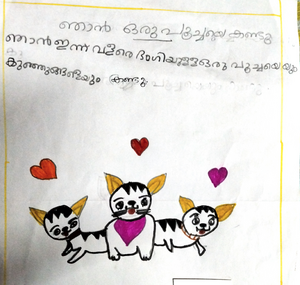 ഞാൻ ഒരു പൂച്ചയെ കണ്ടു
ഞാൻ ഇന്ന് വളരെ ഭംഗിയുള്ള ഒരു പൂച്ചയെയും
കുഞ്ഞുങ്ങളെയും കണ്ടു